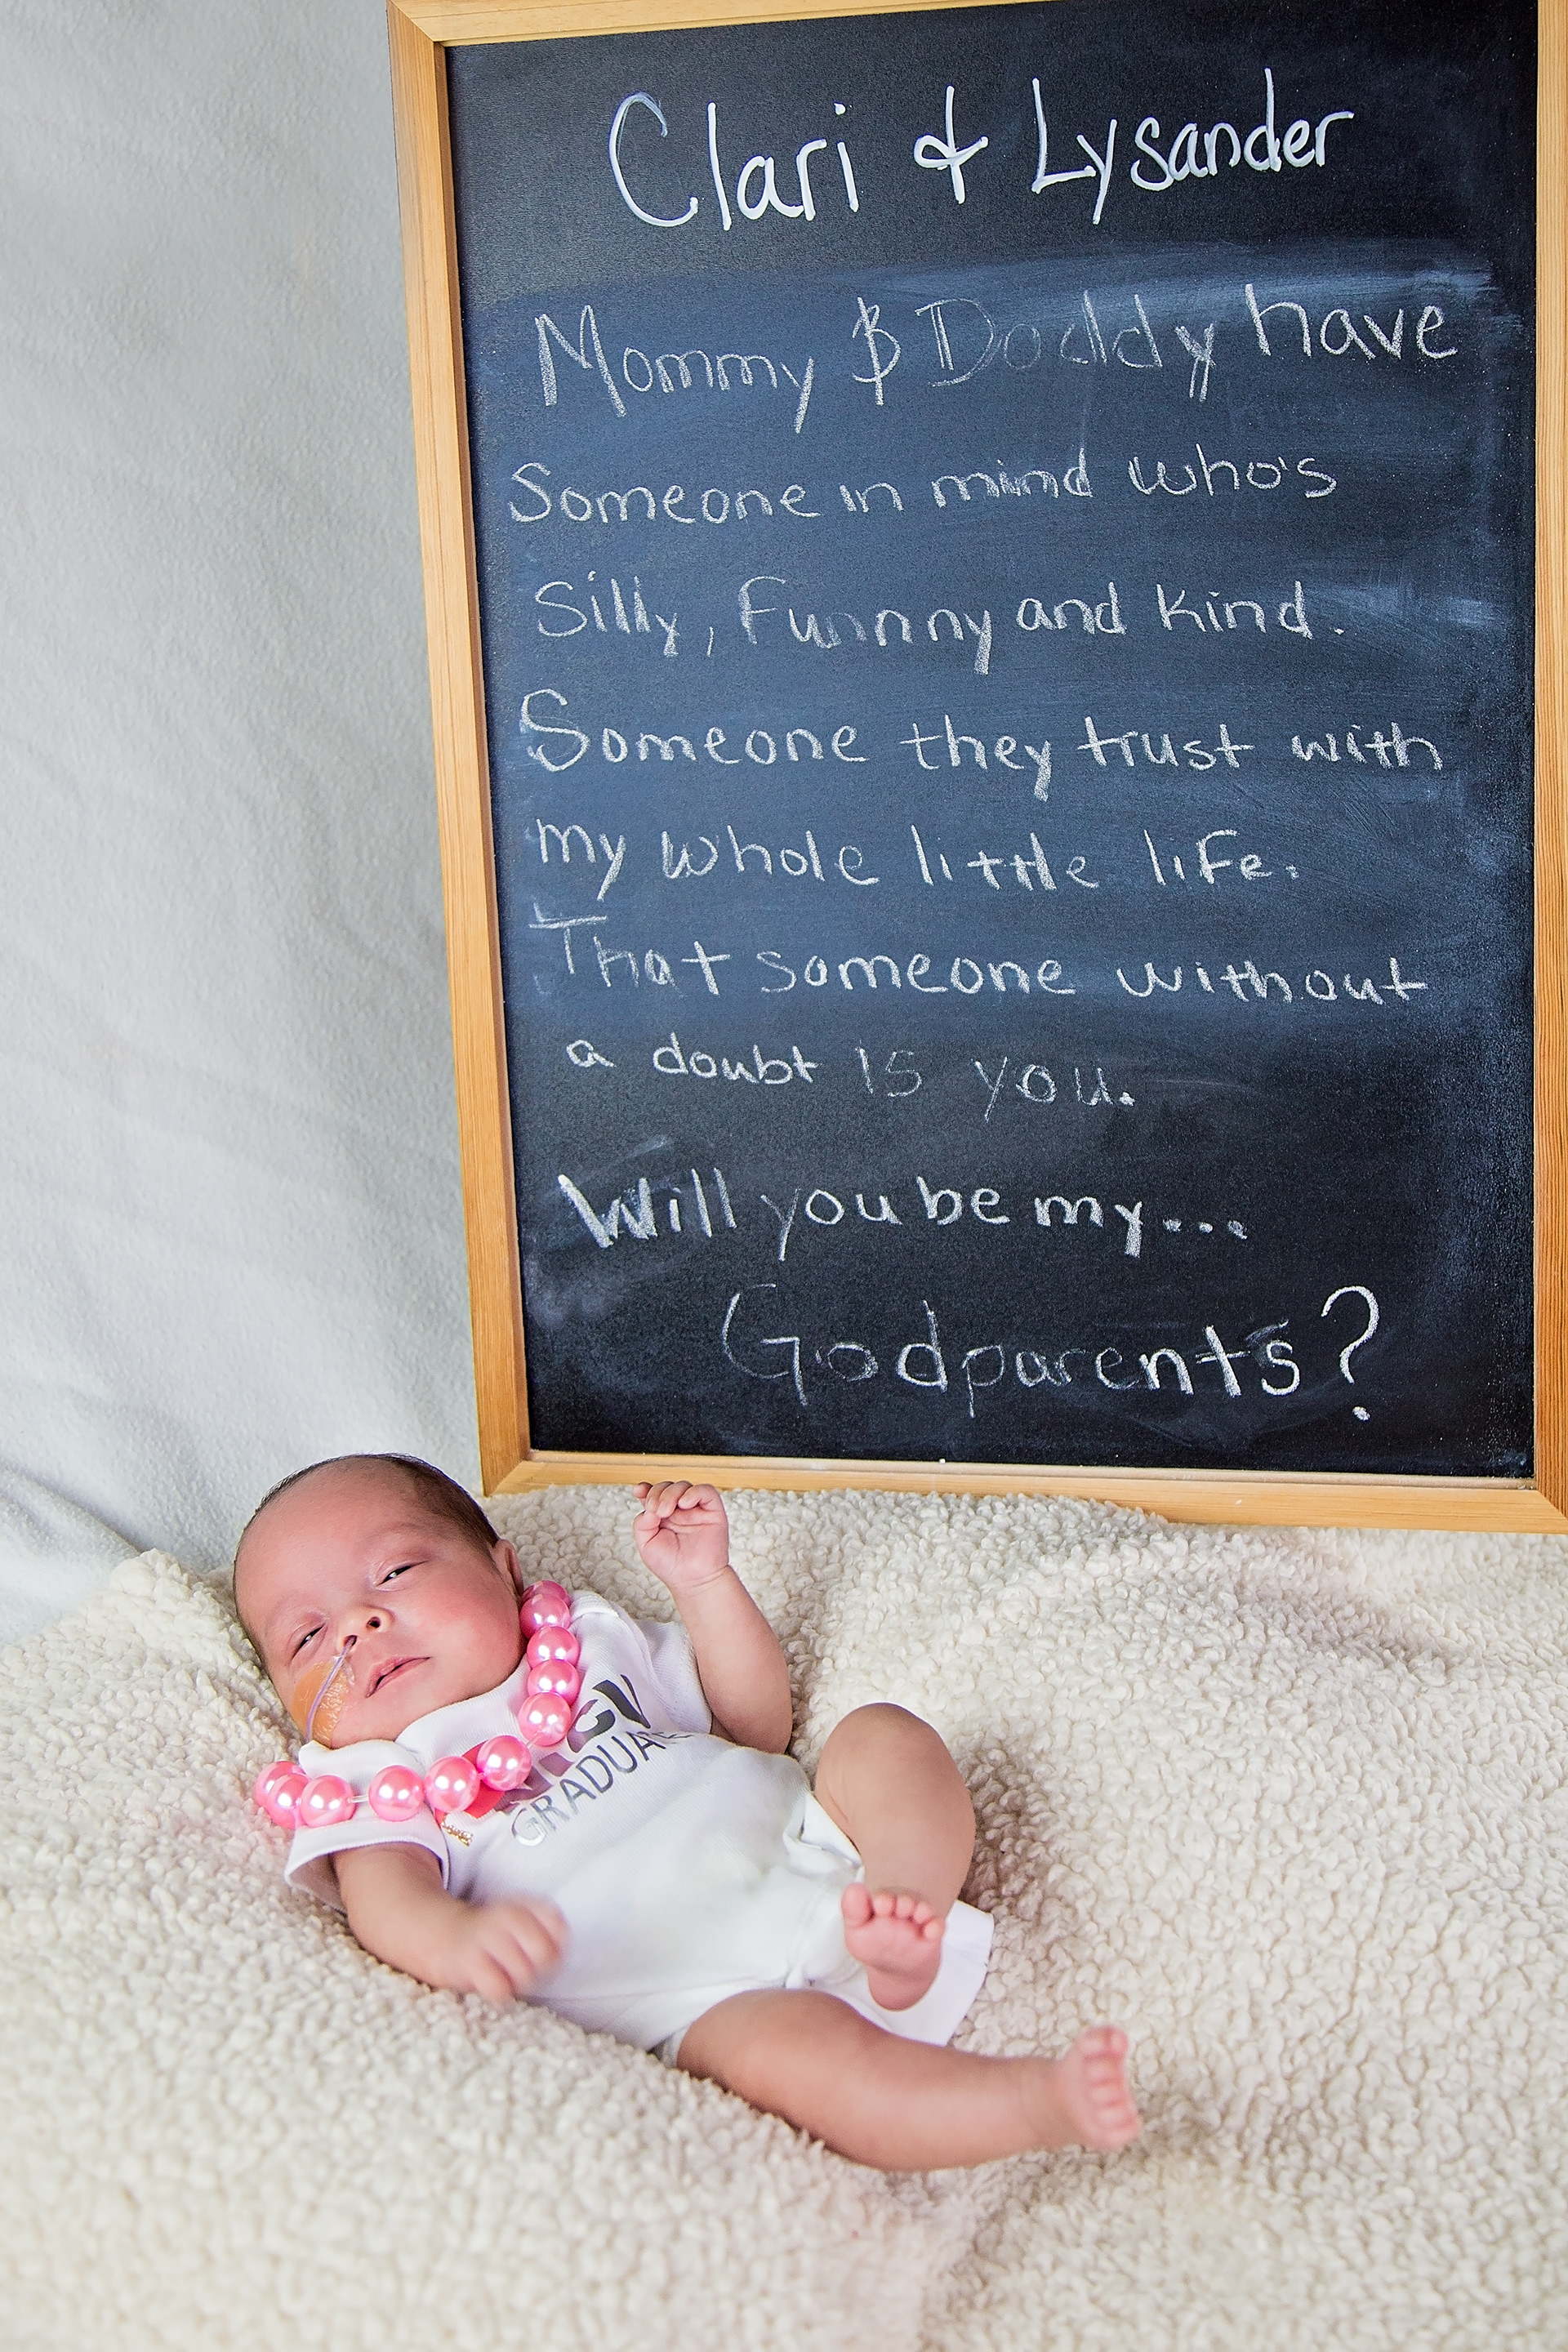 Clari & Lysander
Mommy & Daddy have
Someone in mind who's
Silly, Funnny and kind.
Someone they trust with
my whole little life.
That someone without
a doubt is you.
Will you be my...
Godparents?
GRADUATE